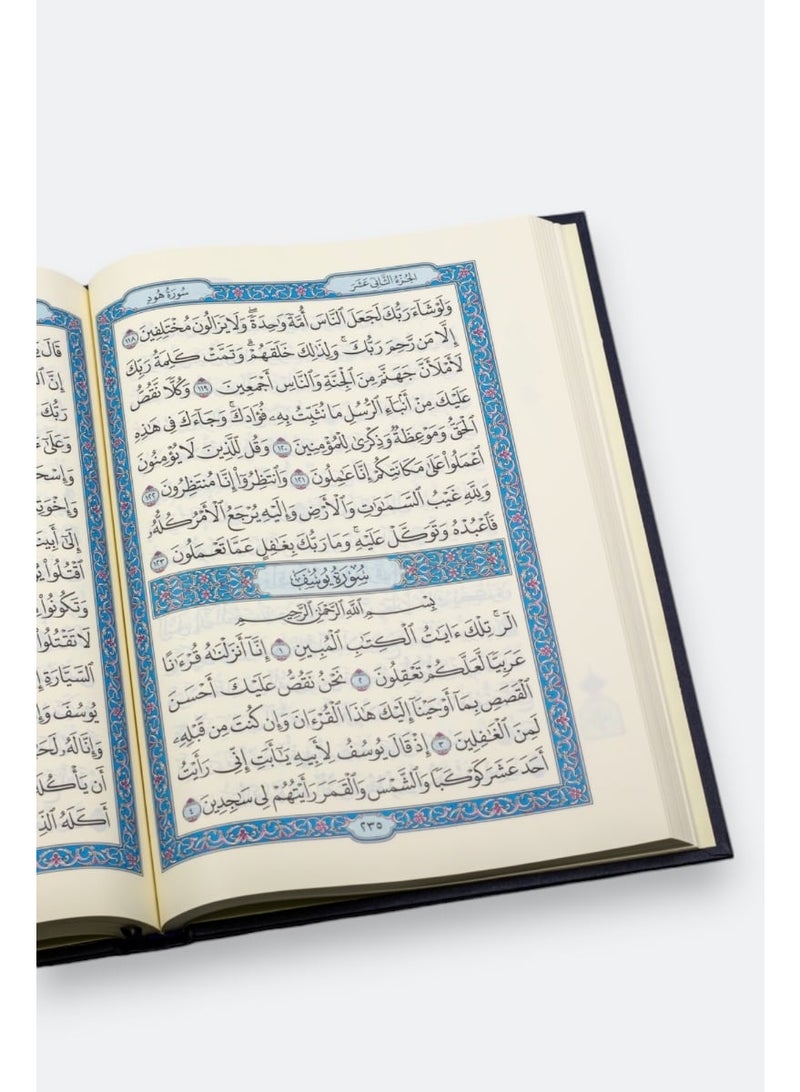 الجزء الثاني عشر
سورة هود
وَلَوْ شَآءَ رَبُّكَ لَجَعَلَ ٱلنَّاسَ أُمَّةً وَٰحِدَةً ۖ وَلَا يَزَالُونَ مُخْتَلِفِينَ ١١٨
إِلَّا مَن رَّحِمَ رَبُّكَ ۚ وَلِذَٰلِكَ خَلَقَهُمْ ۗ وَتَمَّتْ كَلِمَةُ رَبِّكَ
لَأَمْلَأَنَّ جَهَنَّمَ مِنَ ٱلْجِنَّةِ وَٱلنَّاسِ أَجْمَعِينَ ١١٩ وَكُلًّا نَّقُصُّ
عَلَيْكَ مِنْ أَنۢبَآءِ ٱلرُّسُلِ مَا نُثَبِّتُ بِهِۦ فُؤَادَكَ ۚ وَجَآءَكَ فِى هَٰذِهِ
ٱلْحَقُّ وَمَوْعِظَةٌ وَذِكْرَىٰ لِلْمُؤْمِنِينَ ١٢٠ وَقُل لِّلَّذِينَ لَا يُؤْمِنُونَ
ٱعْمَلُوا۟ عَلَىٰ مَكَانَتِكُمْ إِنَّا عَٰمِلُونَ ١٢١ وَٱنتَظِرُوٓا۟ إِنَّا مُنتَظِرُونَ ١٢٢
وَلِلَّهِ غَيْبُ ٱلسَّمَٰوَٰتِ وَٱلْأَرْضِ وَإِلَيْهِ يُرْجَعُ ٱلْأَمْرُ كُلُّهُۥ
فَٱعْبُدْهُ وَتَوَكَّلْ عَلَيْهِ ۚ وَمَا رَبُّكَ بِغَٰفِلٍ عَمَّا تَعْمَلُونَ ١٢٣
سورة يوسف
بِسْمِ ٱللَّهِ ٱلرَّحْمَٰنِ ٱلرَّحِيمِ
الٓر ۚ تِلْكَ ءَايَٰتُ ٱلْكِتَٰبِ ٱلْمُبِينِ ١ إِنَّآ أَنزَلْنَٰهُ قُرْءَٰنًا
عَرَبِيًّا لَّعَلَّكُمْ تَعْقِلُونَ ٢ نَحْنُ نَقُصُّ عَلَيْكَ أَحْسَنَ
ٱلْقَصَصِ بِمَآ أَوْحَيْنَآ إِلَيْكَ هَٰذَا ٱلْقُرْءَانَ وَإِن كُنتَ مِن قَبْلِهِۦ
لَمِنَ ٱلْغَٰفِلِينَ ٣ إِذْ قَالَ يُوسُفُ لِأَبِيهِ يَٰٓأَبَتِ إِنِّى رَأَيْتُ
أَحَدَ عَشَرَ كَوْكَبًا وَٱلشَّمْسَ وَٱلْقَمَرَ رَأَيْتُهُمْ لِى سَٰجِدِينَ ٤
٢٣٥
قَالَ
إِنَّ
رَبُّكَ
وَعَلَىٰٓ
وَإِسْحَٰقَ
وَإِخْوَتِهِۦٓ
إِلَىٰٓ أَبِينَا
ٱقْتُلُوا۟
وَتَكُونُوا۟
لَا تَقْتُلُوا۟
ٱلسَّيَّارَةِ
يُوسُفَ
وَإِنَّا لَهُۥ
أَن يَأْكُلَهُ
أَكَلَهُ